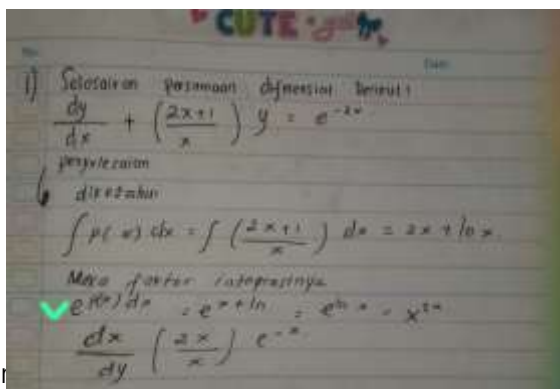 CUTE
1) Selesaikan persamaan diferensial berikut :
dy/dx + ((2x+1)/x) y = e^{-2x}
penyelesaian
diketahui
∫ p(x) dx = ∫ ((2x+1)/x) dx = 2x + ln x.
Maka faktor integrasinya
e^{p(x) dx} = e^{x + ln} = e^{ln x} = x^{2x}
dx/dy (2x/x) e^{-x}